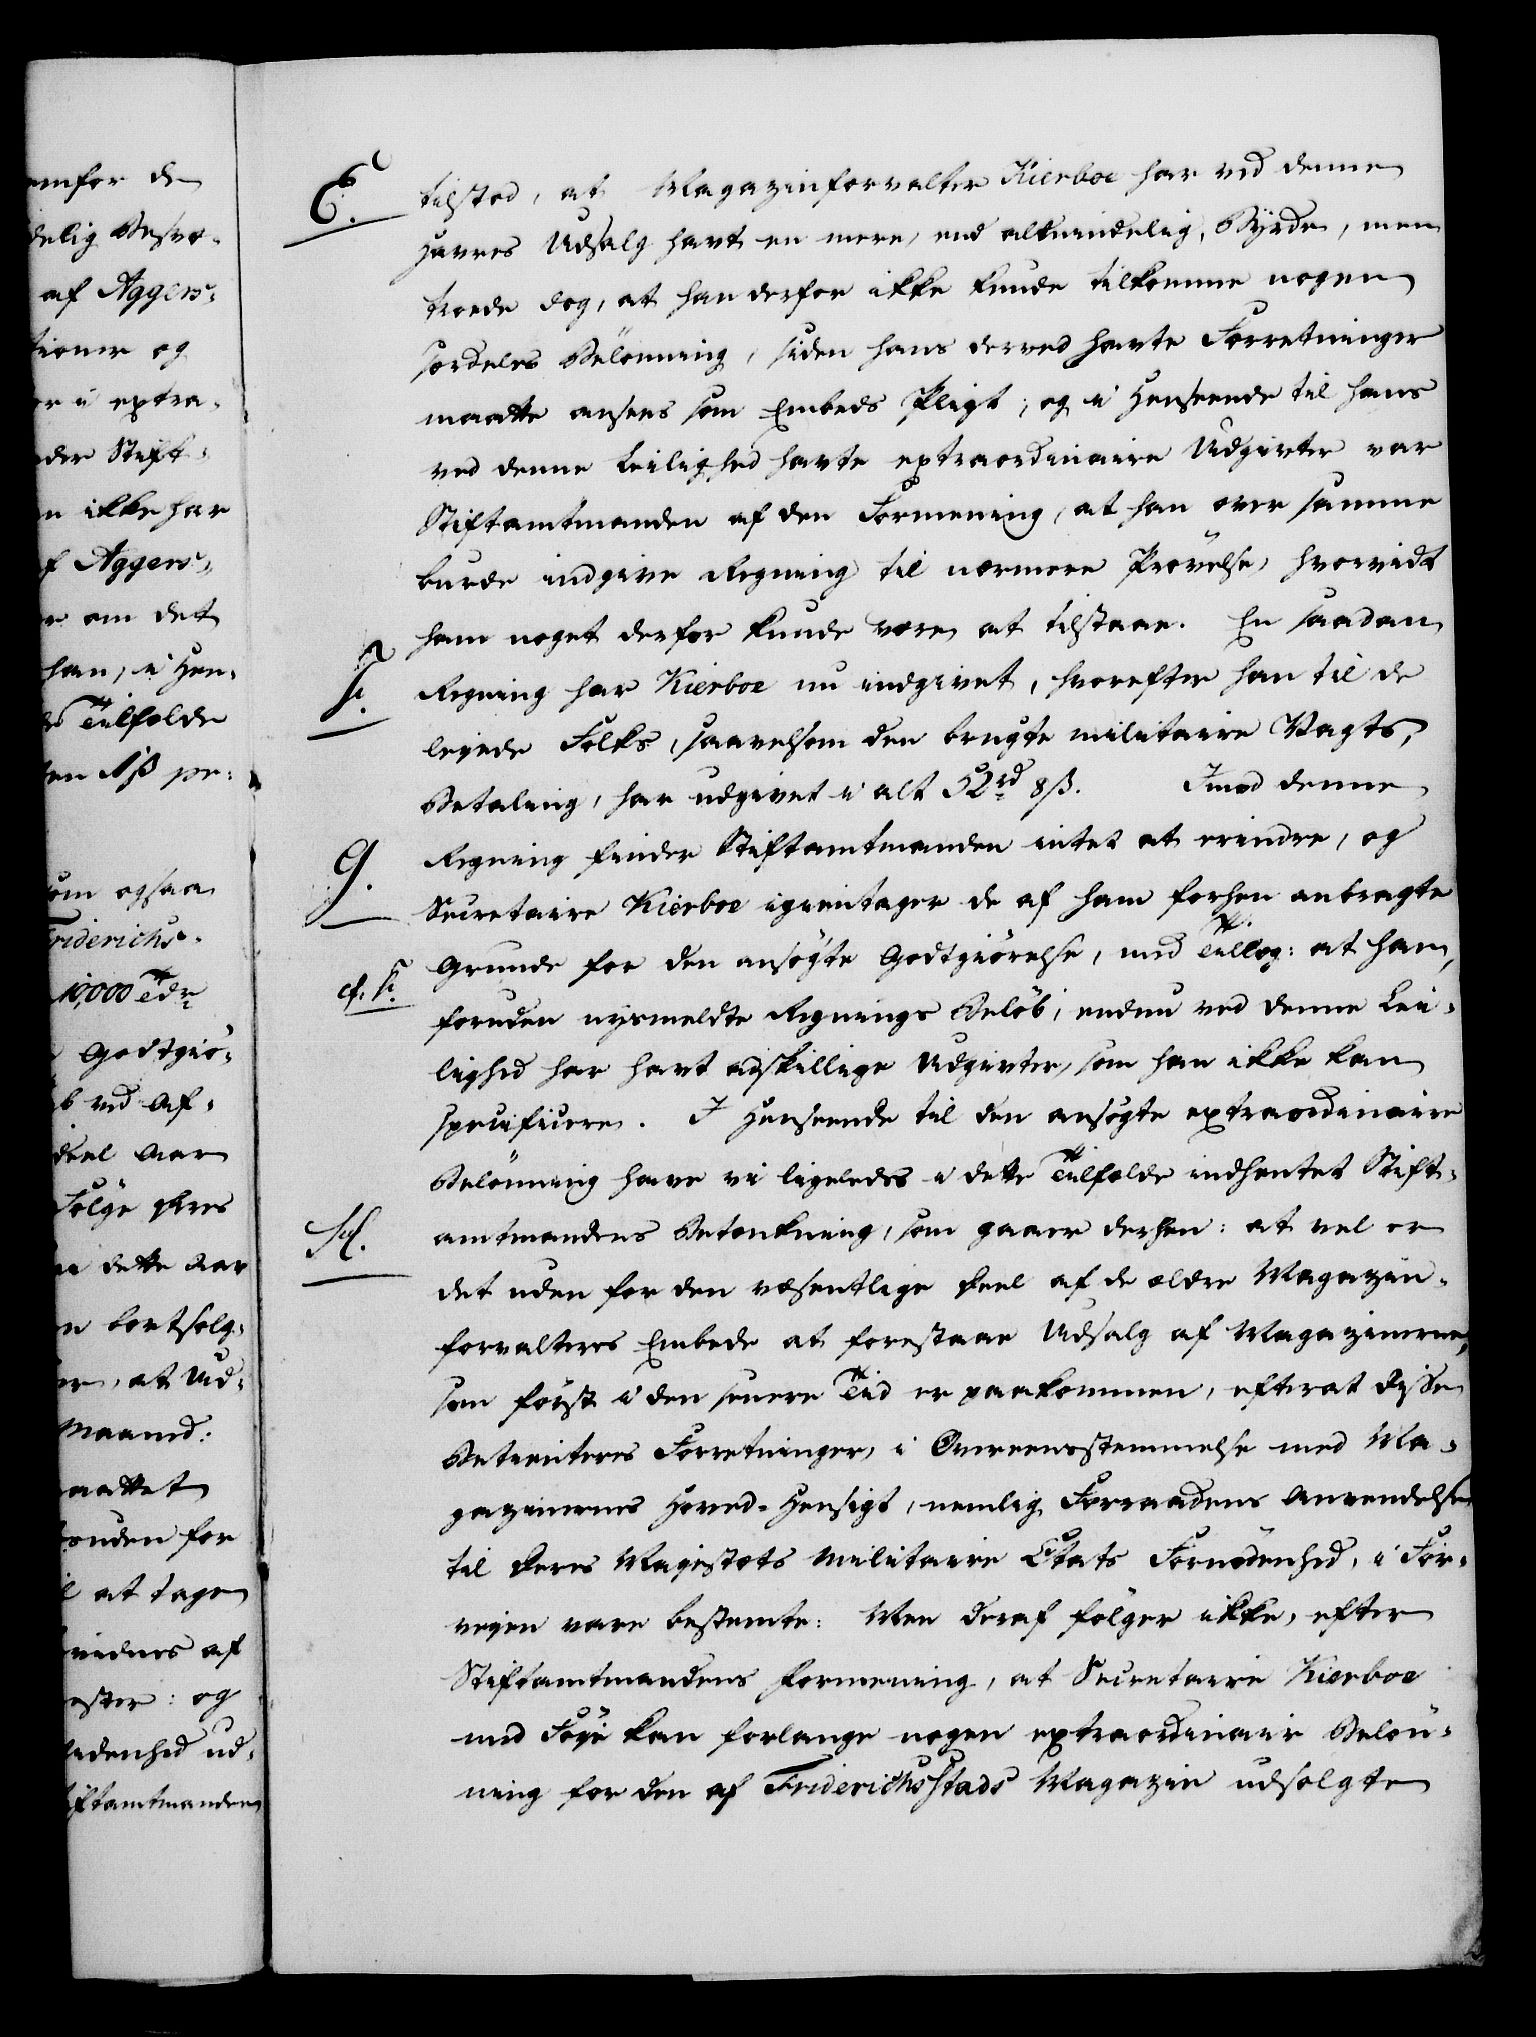 emfor de
delig Besvæ-
af Aggers-
tioner og
er i extra-
der Stift-
n ikke har
f Aggers-
r om det
han, i Hen-
de Tilfælde
ten 1 ß pr:
som ogsaa
Friderichs-
10,000 Tdr
Godtgiö-
b ved Af-
deel Aar
Fölge Deres
i dette Aar
n bortsolg-
er, at Ud-
Maaned:
maattet
bonden for
l at tage
vidnes af
ester: og
ladenhed ud-
iftamtmanden
E. tilstod, at Magazinforvalter Kierboe har ved denne
Havres Udsalg havt en mere, end almindelig, Byrde, men
troede dog, at han derfor ikke kunde tilkomme nogen
særdeles Belönning, siden hans derved havte Forretninger
maatte ansees som Embeds Pligt; og i Henseende til hans
ved denne Leilighed havte extraordinaire Udgivter var
Stiftamtmanden af den Formening, at han over samme
burde indgive Regning til nærmere Prövelse, hvorvidt
ham noget derfor kunde være at tilstaae. En saadan
F. Regning har Kierboe nu indgivet, hvorefter han til de
leiede Folks, saavelsom den brugte militaire Vagts,
Betaling, har udgivet i alt 52 rd 8 ß. Imod denne
G. Regning finder Stiftamtmanden intet at erindre, og
Secretaire Kierboe igientager de af ham forhen anbragte
Grunde for den ansögte Godtgiörelse, med Tillæg: at han,
cf. F. foruden nysmeldte Regnings Belöb, endnu ved denne Lei-
lighed har havt adskillige Udgivter, som han ikke kan
specificere. I Henseende til den ansögte extraordinaire
Belönning have vi ligeledes i dette Tilfælde indhentet Stift-
H. amtmandens Betænkning, som gaaer derhen: at vel er
det uden for den væsentlige Deel af de ældre Magazin-
forvalteres Embede at forestaae Udsalg af Magazinerne,
som först i den senere Tiid er paakommen, efterat disse
Betienteres Forretninger, i Overeensstemmelse med Ma-
gazinernes Hoved-Hensigt, nemlig Forraadens Anvendelse
til Deres Majestæts Militaire Etats Fornödenhed, i For-
veyen vare bestemte: Men deraf fölger ikke, efter
Stiftamtmandens Formening, at Secretaire Kierboe
med Föye kan forlange nogen extraordinair Belön-
ning for den af Friderichsstads Magazin udsolgte